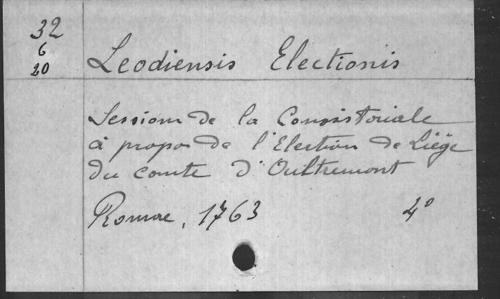 32
6
20
Leodiensis Electionis
Sessions de la Consistoriale
à propos de l'Election de Liège
du comte d'Oultremont
Romae, 1763 4°